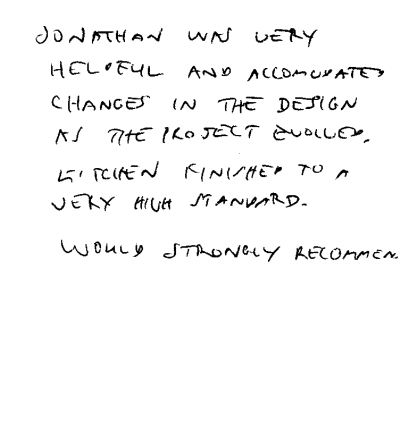 JONATHAN WAS VERY
HELPFUL AND ACCOMODATED
CHANGES IN THE DESIGN
AS THE PROJECT EVOLVED.
KITCHEN FINISHED TO A
VERY HIGH STANDARD.
WOULD STRONGLY RECOMMEN